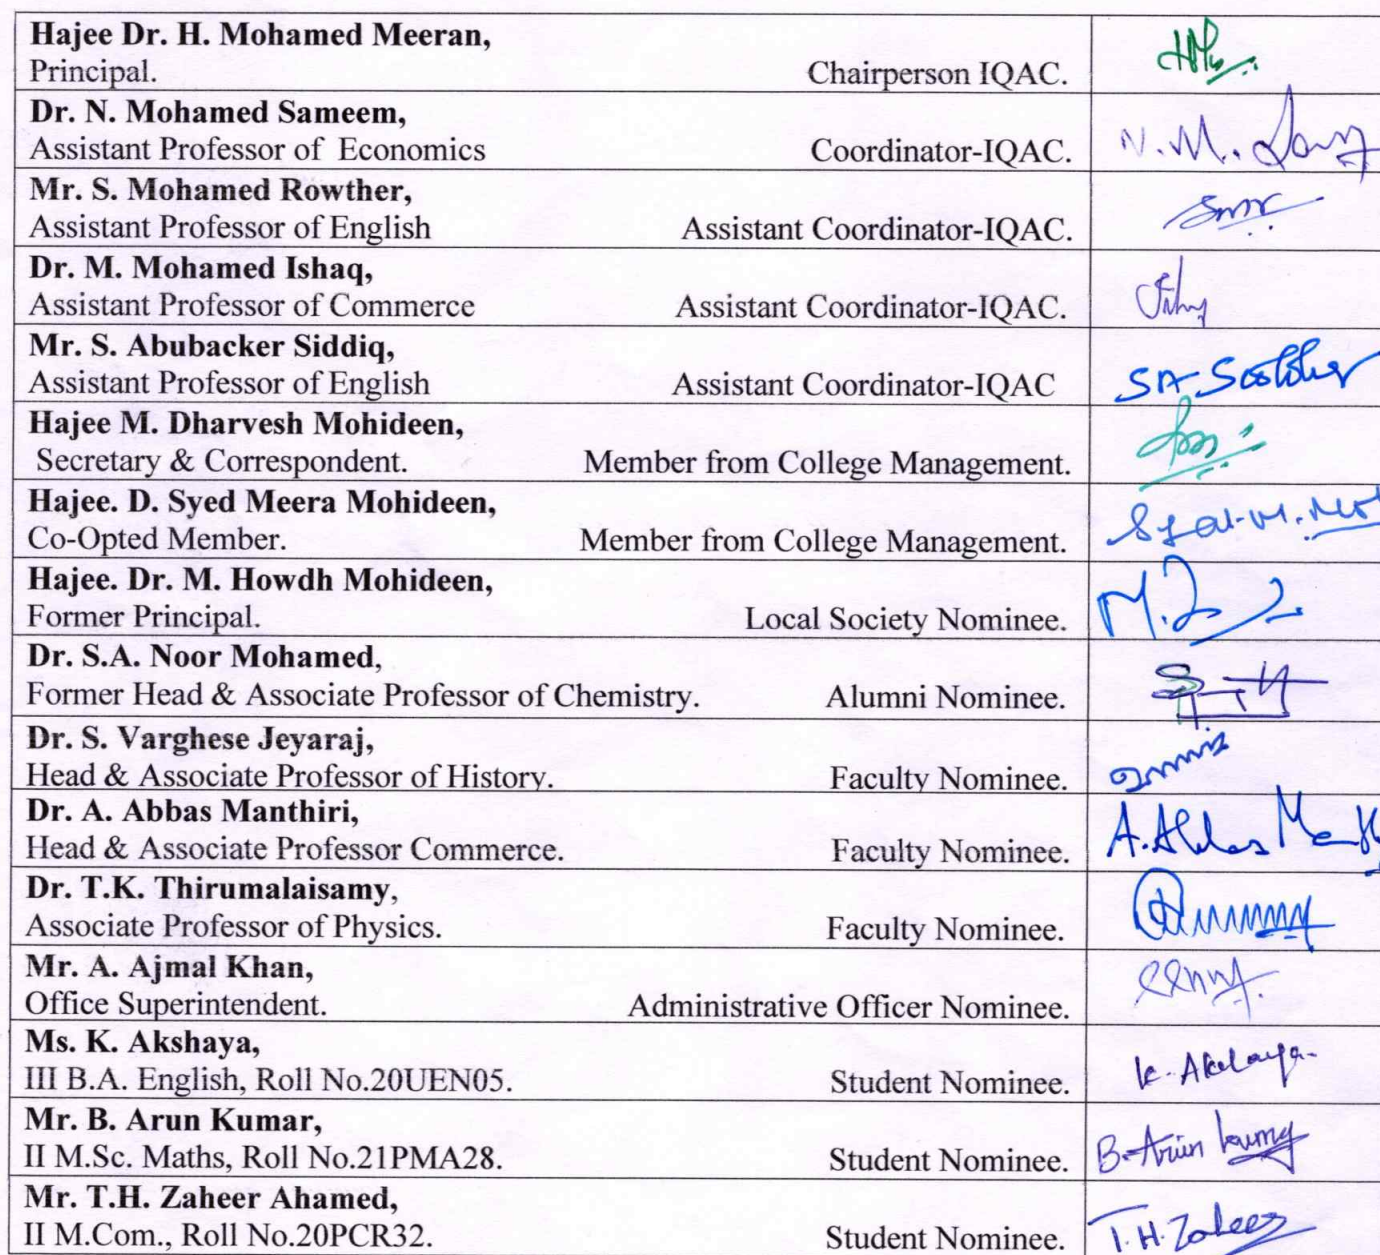 Hajee Dr. H. Mohamed Meeran,
Principal. Chairperson IQAC.
Dr. N. Mohamed Sameem,
Assistant Professor of Economics Coordinator-IQAC. N.M.
Mr. S. Mohamed Rowther,
Assistant Professor of English Assistant Coordinator-IQAC.
Dr. M. Mohamed Ishaq,
Assistant Professor of Commerce Assistant Coordinator-IQAC.
Mr. S. Abubacker Siddiq,
Assistant Professor of English Assistant Coordinator-IQAC
Hajee M. Dharvesh Mohideen,
Secretary & Correspondent. Member from College Management.
Hajee. D. Syed Meera Mohideen,
Co-Opted Member. Member from College Management.
Hajee. Dr. M. Howdh Mohideen,
Former Principal. Local Society Nominee.
Dr. S.A. Noor Mohamed,
Former Head & Associate Professor of Chemistry. Alumni Nominee.
Dr. S. Varghese Jeyaraj,
Head & Associate Professor of History. Faculty Nominee.
Dr. A. Abbas Manthiri,
Head & Associate Professor Commerce. Faculty Nominee.
Dr. T.K. Thirumalaisamy,
Associate Professor of Physics. Faculty Nominee.
Mr. A. Ajmal Khan,
Office Superintendent. Administrative Officer Nominee.
Ms. K. Akshaya,
III B.A. English, Roll No.20UEN05. Student Nominee. K. Akshaya.
Mr. B. Arun Kumar,
II M.Sc. Maths, Roll No.21PMA28. Student Nominee. B. Arun Kumar
Mr. T.H. Zaheer Ahamed,
II M.Com., Roll No.20PCR32. Student Nominee. T.H. Zaheer